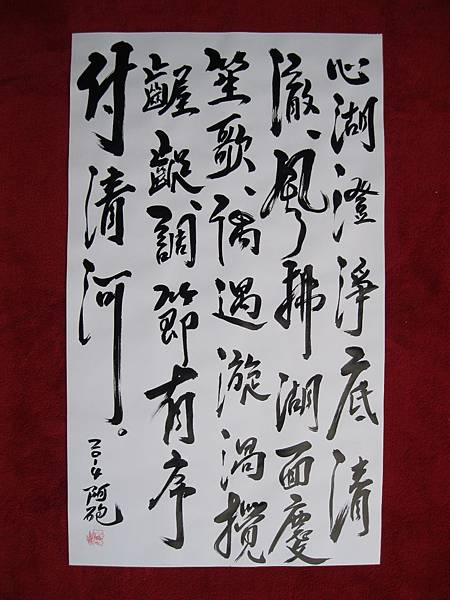 心湖澄淨底清
澈、風拂湖面慶
笙歌、偶遇漩渦攪
齷齪、調節有序
付清河。
2014 阿砲